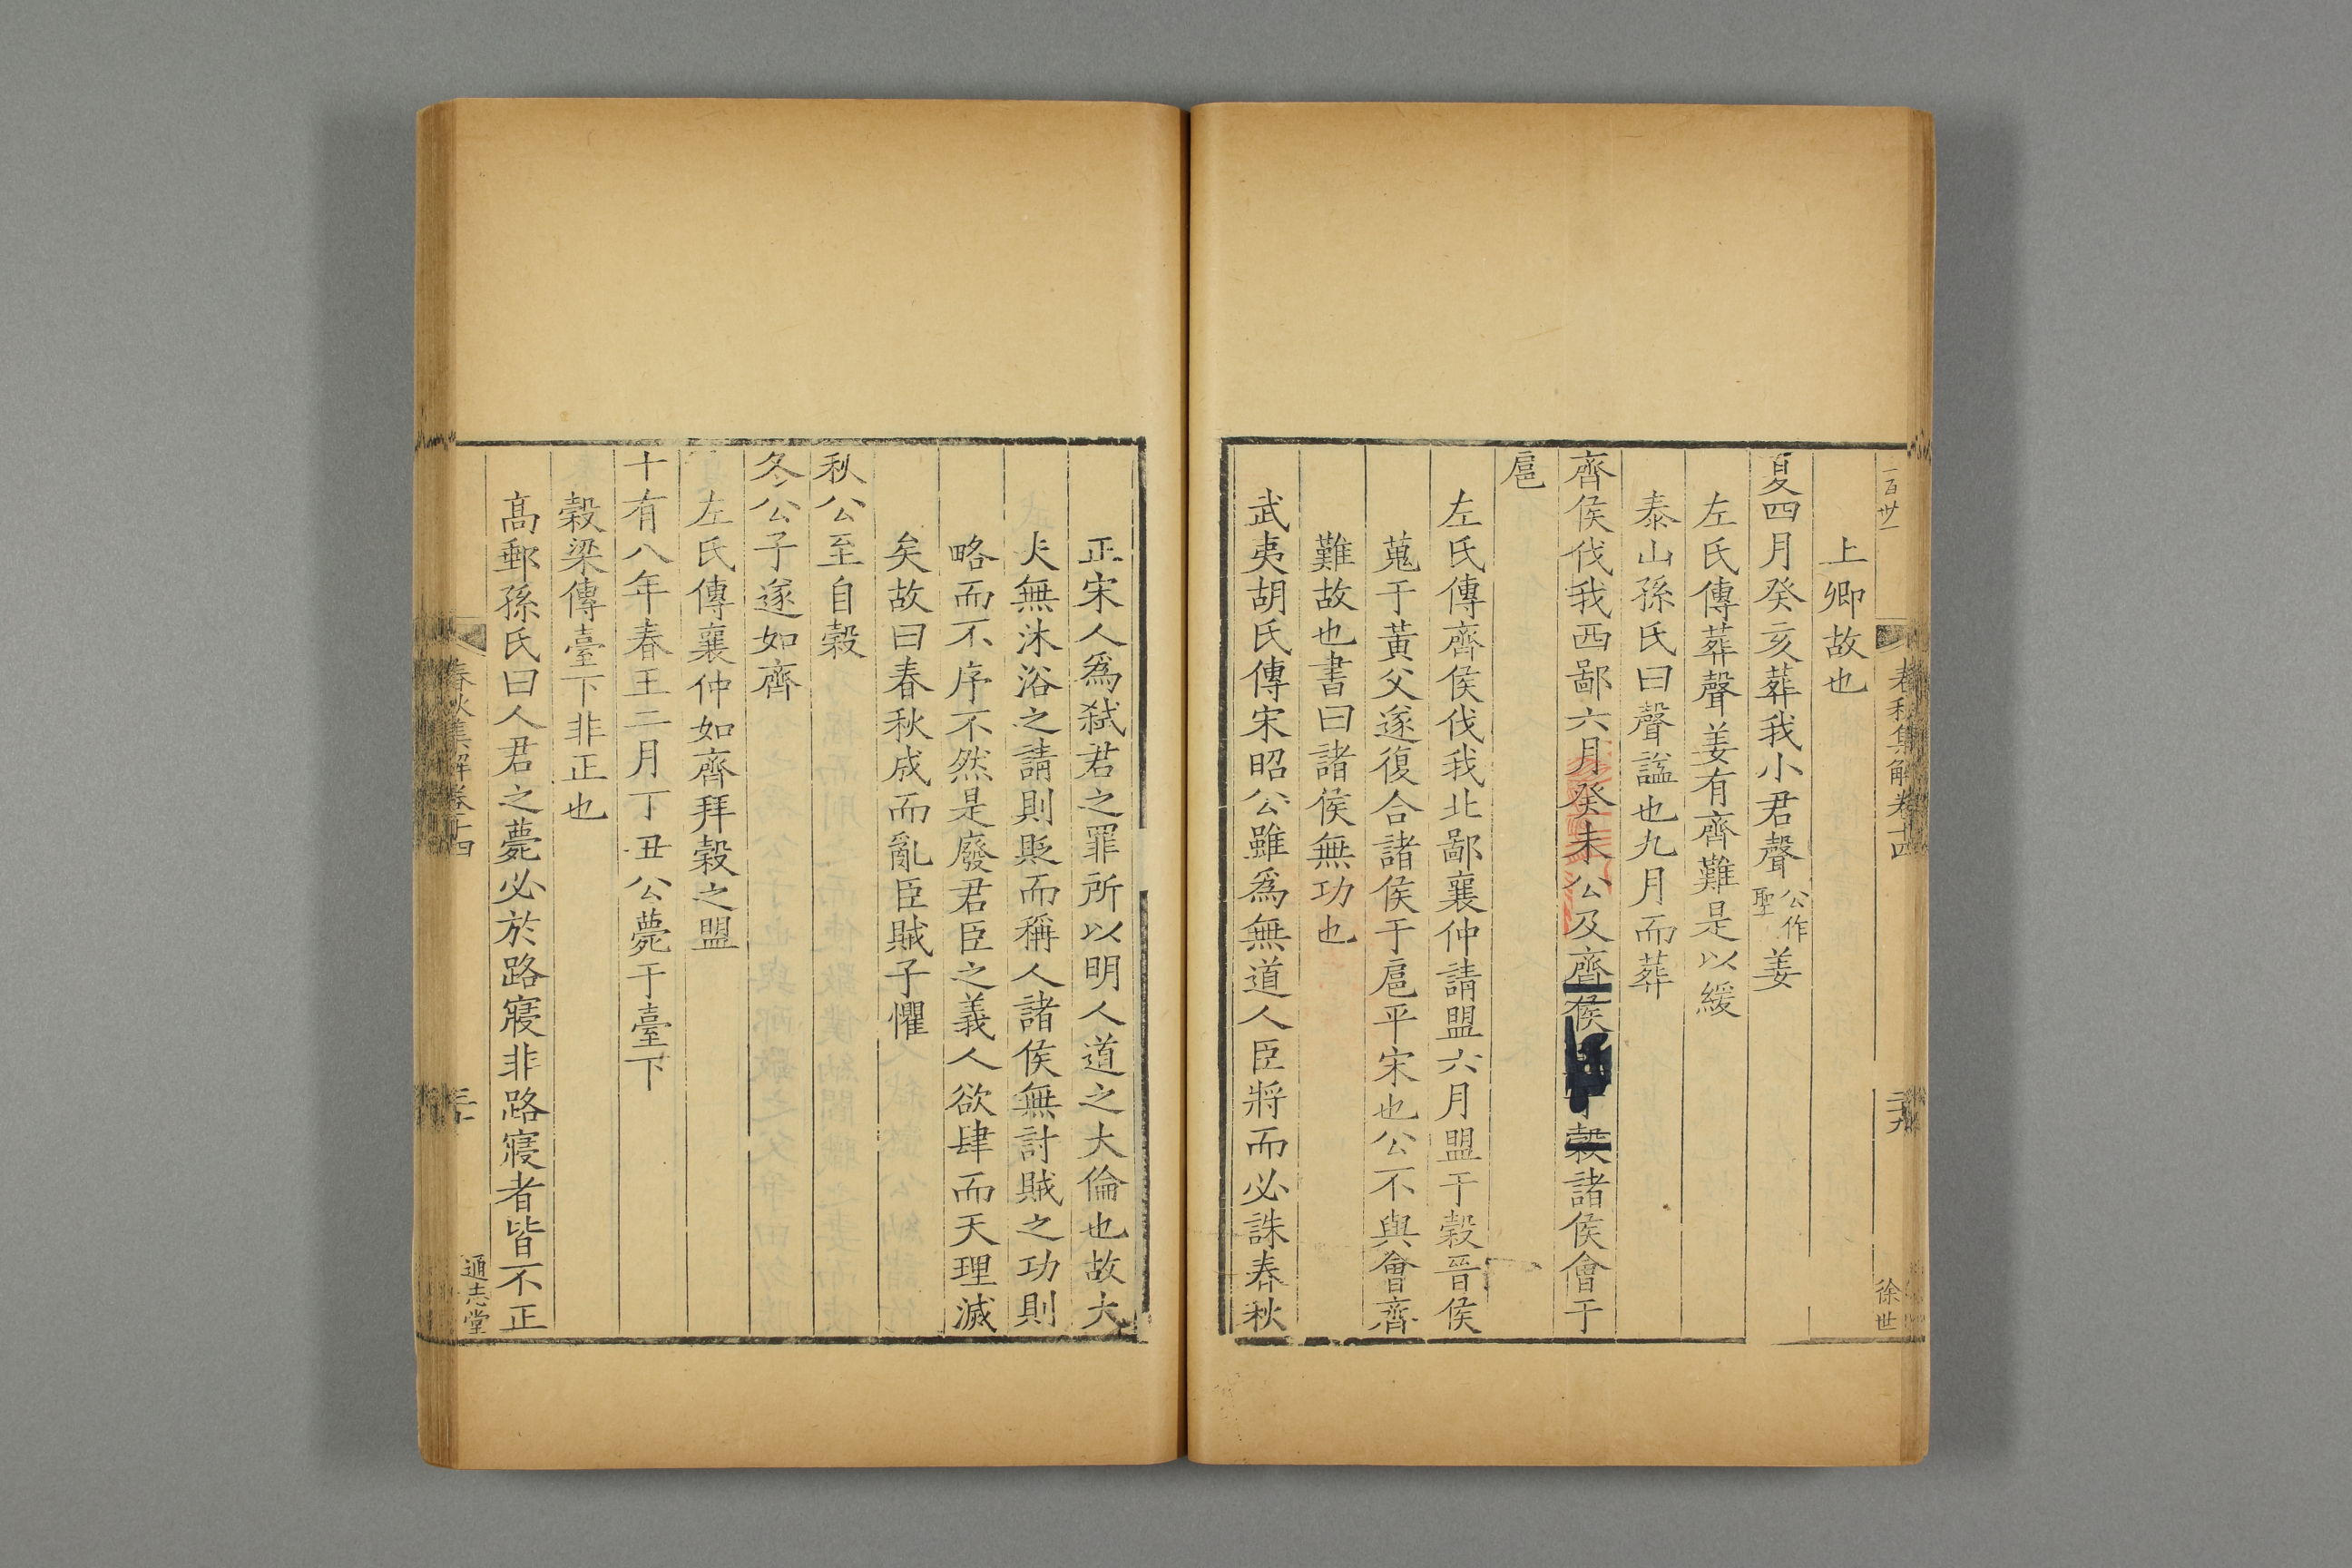 一百廿一
春秋集解卷十四
二十九
徐世
上卿故也
夏四月癸亥葬我小君聲公作聖姜
左氏傳葬聲姜有齊難是以緩
泰山孫氏曰聲諡也九月而葬
齊侯伐我西鄙六月癸未公及齊侯于穀諸侯會于
扈
左氏傳齊侯伐我北鄙襄仲請盟六月盟于穀晉侯
蒐于黃父遂復合諸侯于扈平宋也公不與會齊
難故也書曰諸侯無功也
武夷胡氏傳宋昭公雖爲無道人臣將而必誅春秋
正宋人爲弑君之罪所以明人道之大倫也故大
夫無沐浴之請則貶而稱人諸侯無討賊之功則
略而不序不然是廢君臣之義人欲肆而天理滅
矣故曰春秋成而亂臣賊子懼
秋公至自穀
冬公子遂如齊
左氏傳襄仲如齊拜穀之盟
十有八年春王二月丁丑公薨于臺下
穀梁傳臺下非正也
高郵孫氏曰人君之薨必於路寢非路寢者皆不正
春秋集解卷十四
三十
通志堂